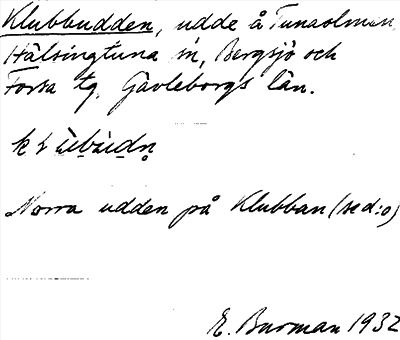 Klubbudden, udde å Tunaolmen,
Hälsingtuna sn, Bergsjö och
Forsa tg. Gävleborgs län.
Norra udden på Klubban (se d:o)
E. Burman 1932